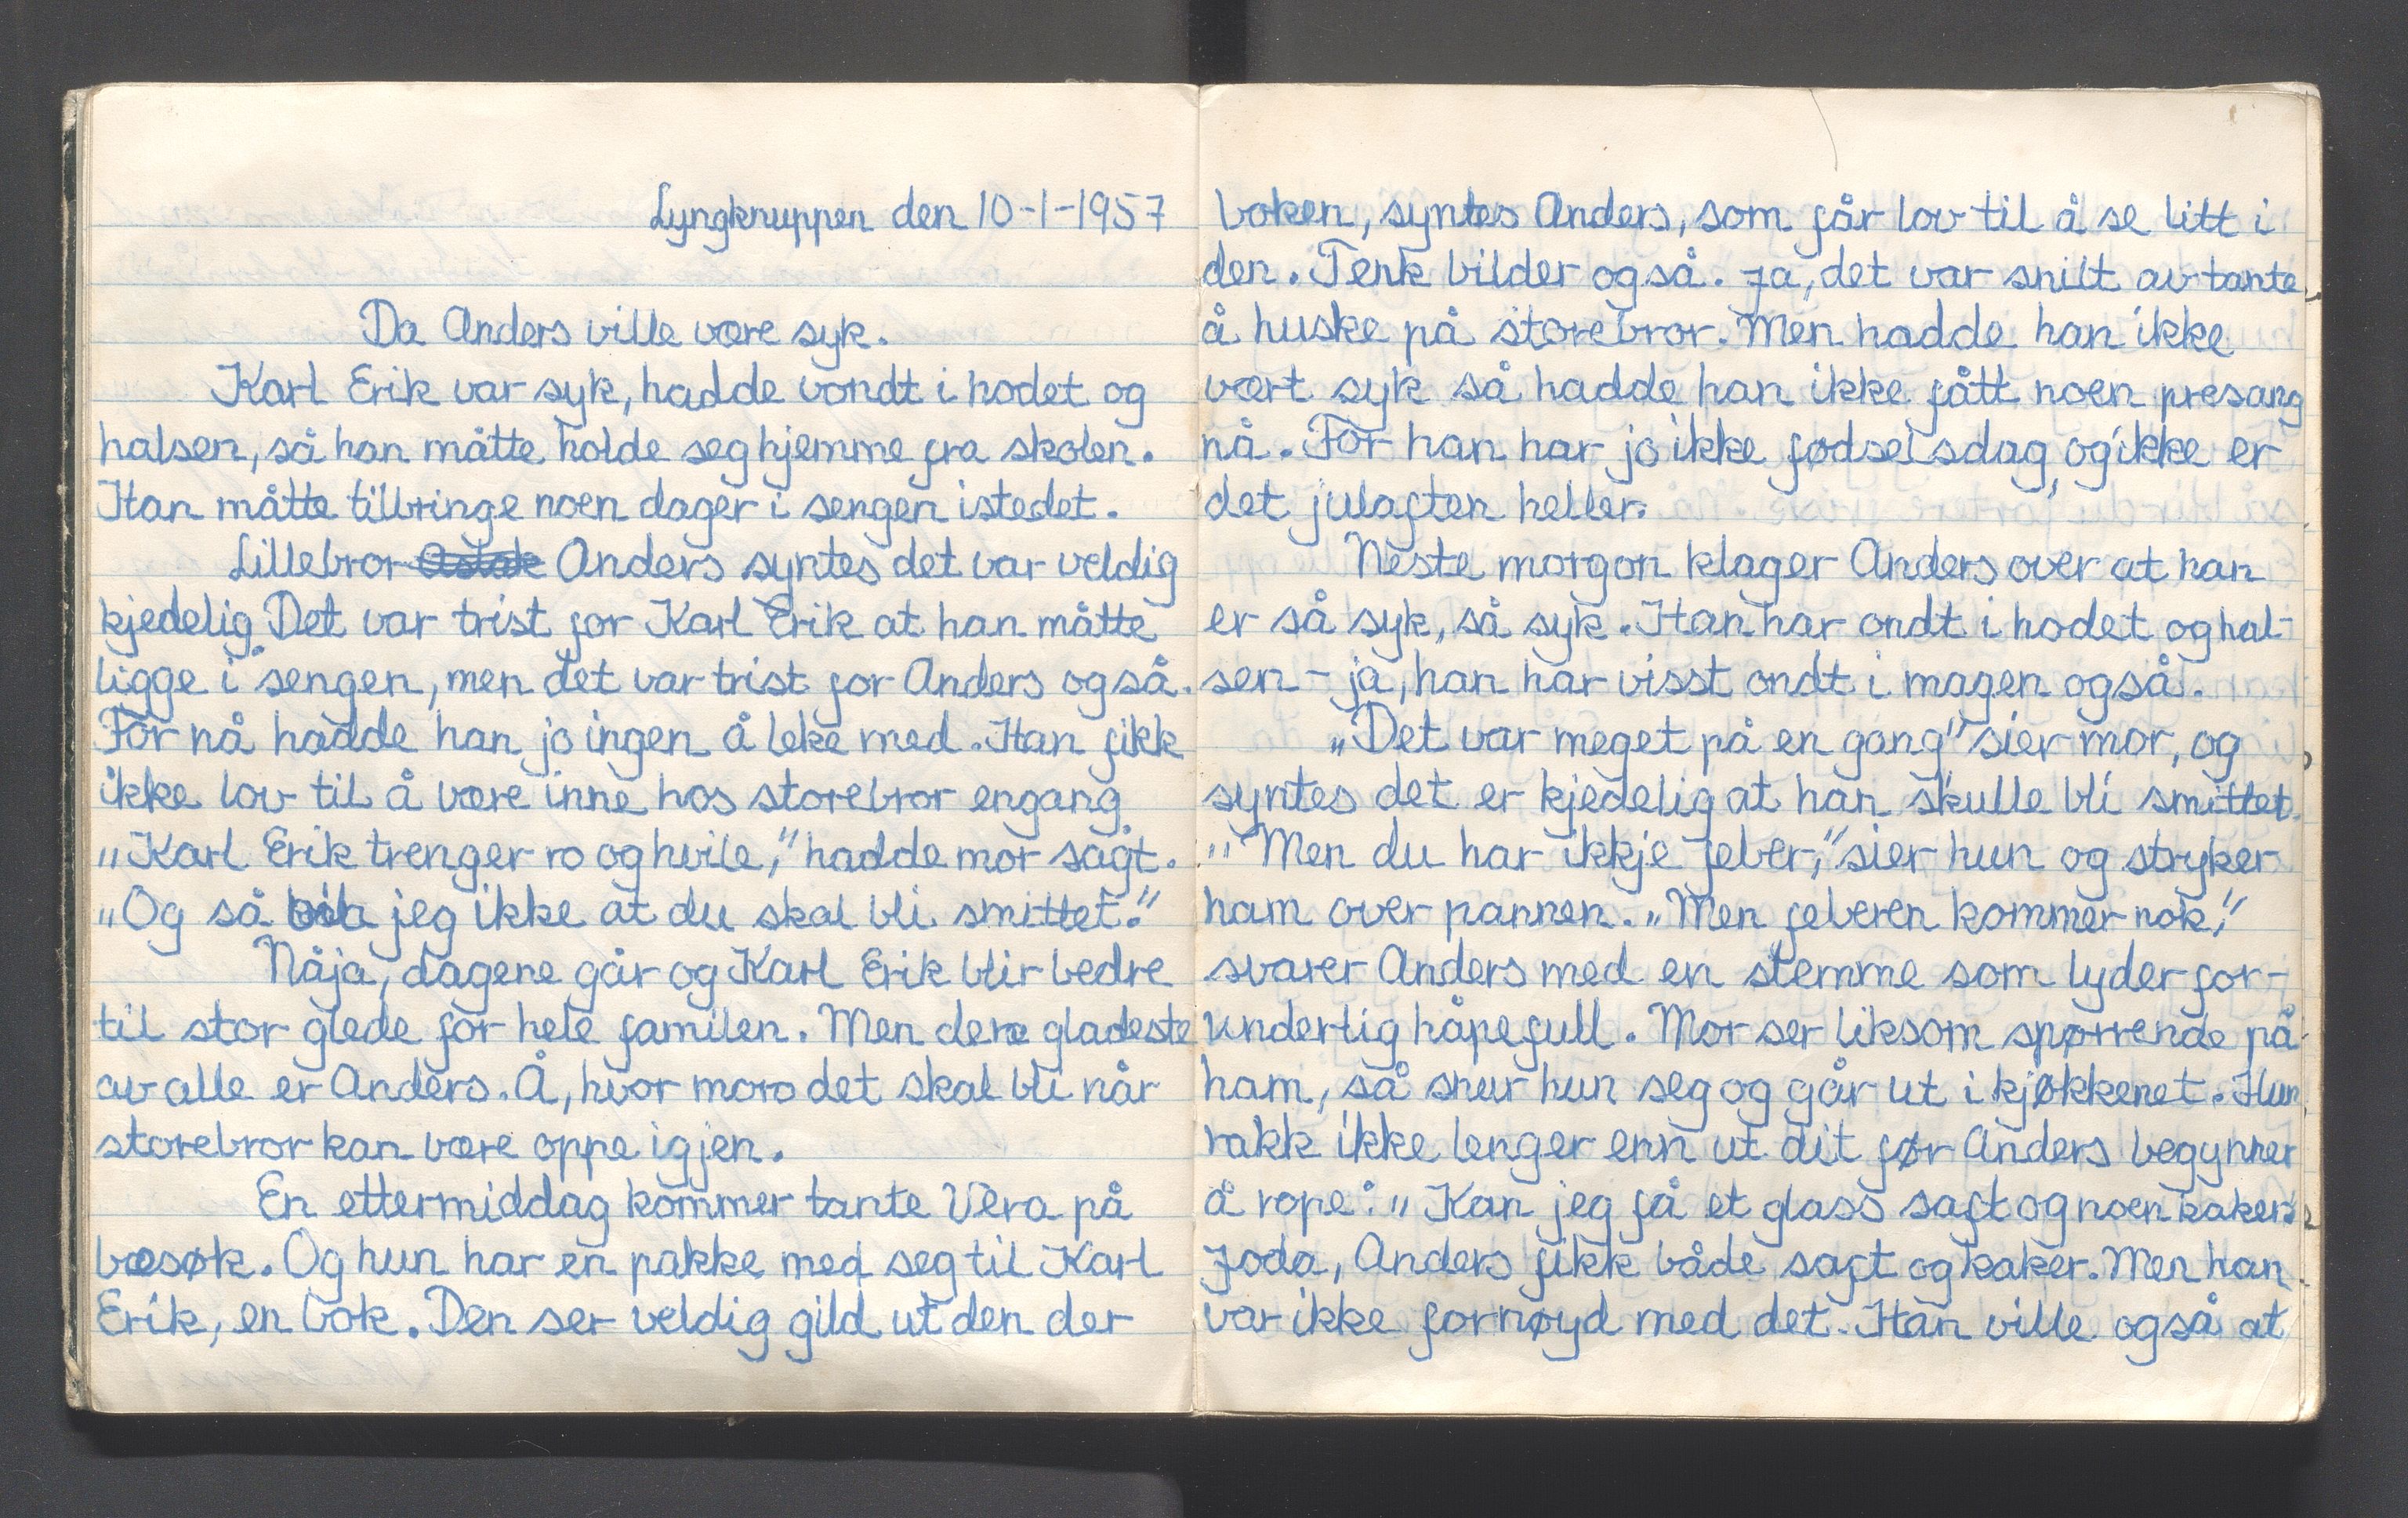 Lyngknuppen den 10-1-1957
Da Anders ville være syk.
Karl Erik var syk, hadde vondt i hodet og
halsen, så han måtte holde seg hjemme fra skolen.
Han måtte tilbringe noen dager i sengen istedet.
Lillebror Anders syntes det var veldig
kjedelig. Det var trist for Karl Erik at han måtte
ligge i sengen, men det var trist for Anders også.
For nå hadde han jo ingen å leke med. Han fikk
ikke lov til å være inne hos storebror engang.
„Karl Erik trenger ro og hvile,” hadde mor sagt.
„Og så vil jeg ikke at du skal bli smittet.”
Nåja, dagene går og Karl Erik blir bedre
til stor glede for hele familen. Men dere gladeste
av alle er Anders. Å, hvor moro det skal bli når
storebror kan være oppe igjen.
En ettermiddag kommer tante Vera på
besøk. Og hun har en pakke med seg til Karl
Erik, en bok. Den ser veldig gild ut den der
boken, syntes Anders, som får lov til å se litt i
den. Tenk bilder også. Ja, det var snilt av tante
å huske på storebror. Men hadde han ikke
vært syk så hadde han ikke fått noen presang
nå. For han har jo ikke fødselsdag, og ikke er
det julaften heller.
Neste morgon klager Anders over at han
er så syk, så syk. Han har ondt i hodet og hal-
sen - ja, han har visst ondt i magen også.
„Det var meget på en gang” sier mor, og
syntes det er kjedelig at han skulle bli smittet.
„Men du har ikkje feber,” sier hun og stryker
ham over pannen. „Men feberen kommer nok,”
svarer Anders med en stemme som lyder for-
underlig håpefull. Mor ser liksom spørrende på
ham, så snur hun seg og går ut i kjøkkenet. Hun
rakk ikke lenger enn ut dit før Anders begynner
å rope: „Kan jeg få et glass saft og noen kaker.”
Joda, Anders fikk både saft og kaker. Men han
var ikke fornøyd med det. Han ville også at